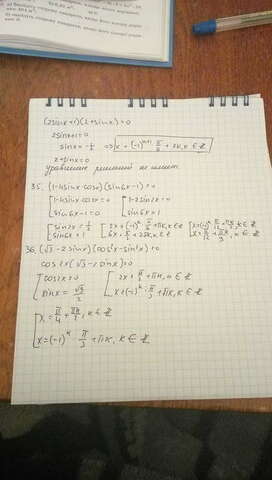 (2sinx+1)(2+sinx)=0
2sinx+1=0
sinx=-1/2 ⇒ x=(-1)^(n+1) π/6 + πk, k∈Z
2+sinx=0
уравнение решений не имеет
35. (1-4sinx·cosx)(sin6x-1)=0
[1-4sinxcosx=0 [1-2sin2x=0
sin6x-1=0 sin6x=1
[sin2x=1/2 [2x=(-1)^k π/6+πk, k∈Z [x=(-1)^k π/12+πk/2, k∈Z
sin6x=1 6x=π/2+2πk, k∈Z x=π/12+πk/3, k∈Z
36. (√3-2sinx)(cos²x-sin²x)=0
cos2x(√3-2sinx)=0
[cos2x=0 [2x=π/2+πk, k∈Z
sinx=√3/2 x=(-1)^k·π/3+πk, k∈Z
[x=π/4+πk/2, k∈Z
x=(-1)^k·π/3+πk, k∈Z